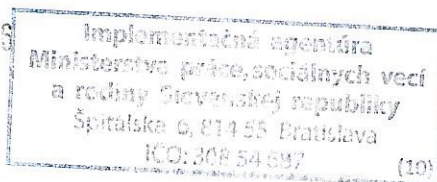 Implementačná agentúra
Ministerstva práce, sociálnych vecí
a rodiny Slovenskej republiky
Špitálska 6, 814 55 Bratislava
IČO: 308 54 687
(10)